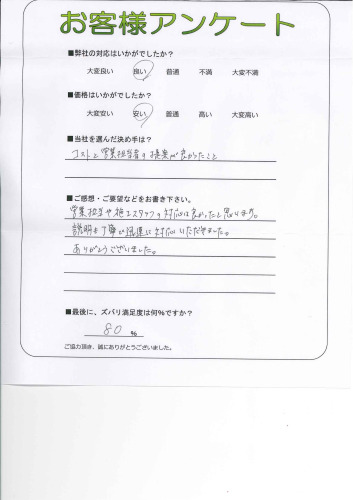 お客様アンケート
■弊社の対応はいかがでしたか？
大変良い 良い 普通 不満 大変不満
■価格はいかがでしたか？
大変安い 安い 普通 高い 大変高い
■当社を選んだ決め手は？
コストと営業担当者の提案が良かったこと
■ご感想・ご要望などをお書き下さい。
営業担当や施工スタッフの対応は良かったと思います。
説明も丁寧で迅速に対応いただけました。
ありがとうございました。
■最後に、ズバリ満足度は何%ですか？
80 %
ご協力頂き、誠にありがとうございました。